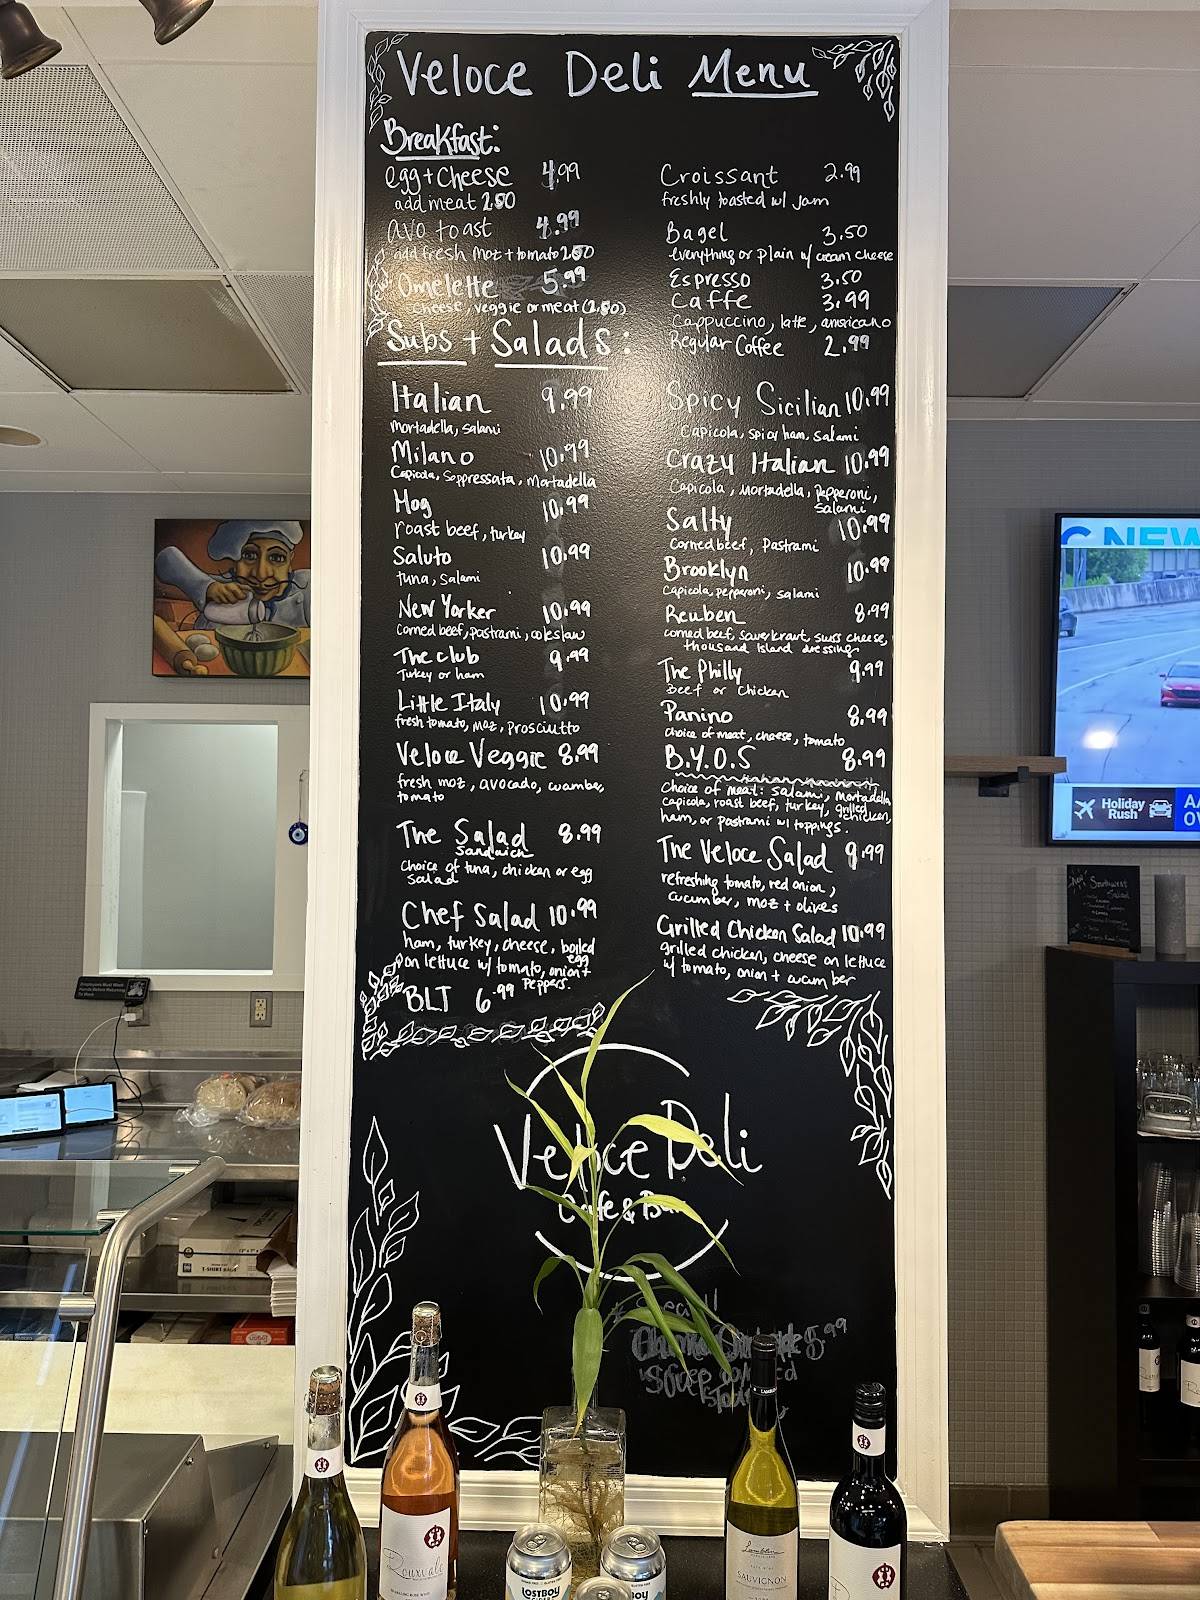 Veloce Deli Menu
Breakfast:
egg + cheese 4.99
add meat 2.50
avo toast 4.99
add fresh moz + tomato 2.50
Omelette 5.99
cheese, veggie or meat (2.50)
Croissant 2.99
freshly toasted w/ jam
Bagel 3.50
everything or plain w/ cream cheese
Espresso 3.50
Caffe 3.99
Cappuccino, latte, americano
Regular Coffee 2.99
Subs + Salads:
Italian 9.99
mortadella, salami
Milano 10.99
Capicola, Soppressata, Mortadella
Hog 10.99
roast beef, turkey
Saluto 10.99
tuna, salami
New Yorker 10.99
corned beef, pastrami, coleslaw
The club 9.99
Turkey or ham
Little Italy 10.99
fresh tomato, moz, prosciutto
Veloce Veggie 8.99
fresh moz, avocado, cucumber,
tomato
The Salad 8.99
Sandwich
choice of tuna, chicken or egg
salad
Chef Salad 10.99
ham, turkey, cheese, boiled
egg
on lettuce w/ tomato, onion +
peppers.
BLT 6.99
Spicy Sicilian 10.99
Capicola, spicy ham, salami
Crazy Italian 10.99
Capicola, mortadella, pepperoni,
salami
Salty 10.99
Corned beef, Pastrami
Brooklyn 10.99
Capicola, pepperoni, salami
Reuben 8.99
corned beef, sauerkraut, swiss cheese,
thousand island dressing
The Philly 9.99
Beef or Chicken
Panino 8.99
choice of meat, cheese, tomato
B.Y.O.S 8.99
Choice of meat: salami, mortadella
capicola, roast beef, turkey, grilled
chicken,
ham, or pastrami w/ toppings.
The Veloce Salad 9.99
refreshing tomato, red onion,
cucumber, moz + olives
Grilled Chicken Salad 10.99
grilled chicken, cheese on lettuce
w/ tomato, onion + cucumber
Veloce Deli
Cafe & Bar
NEW
Holiday
Rush
Southwest
Salad
Employees Must Wash
Hands Before Returning
To Work
T-SHIRT BAGS
Rouxvale
LOSTBOY
CIDER
BOY
SAUVIGNON